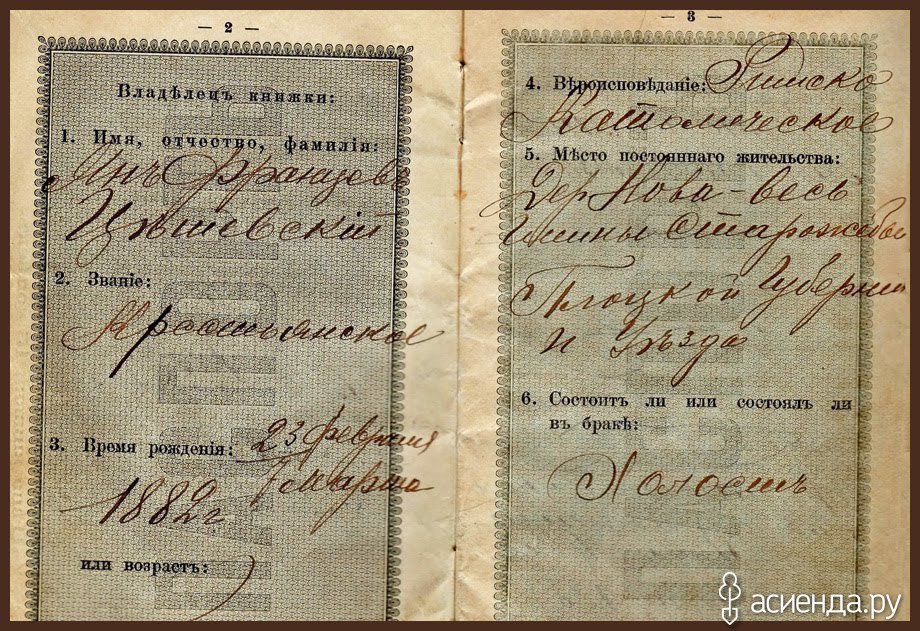 — 2 —
Владѣлецъ книжки:
1. Имя, отчество, фамилія:
Янъ Францевъ
Цѣшевскій
2. Званіе:
Крестьянское
3. Время рожденія: 23 февраля
7 марта
1882 г
или возрастъ:
— 3 —
4. Вѣроисповѣданіе: Римско
Католическое
5. Мѣсто постояннаго жительства:
Дер Нова-весь
Гмины Старожебы
Плоцкой Губерніи
и Уѣзда
6. Состоитъ ли или состоялъ ли
въ бракѣ:
Холостъ
асиенда.ру